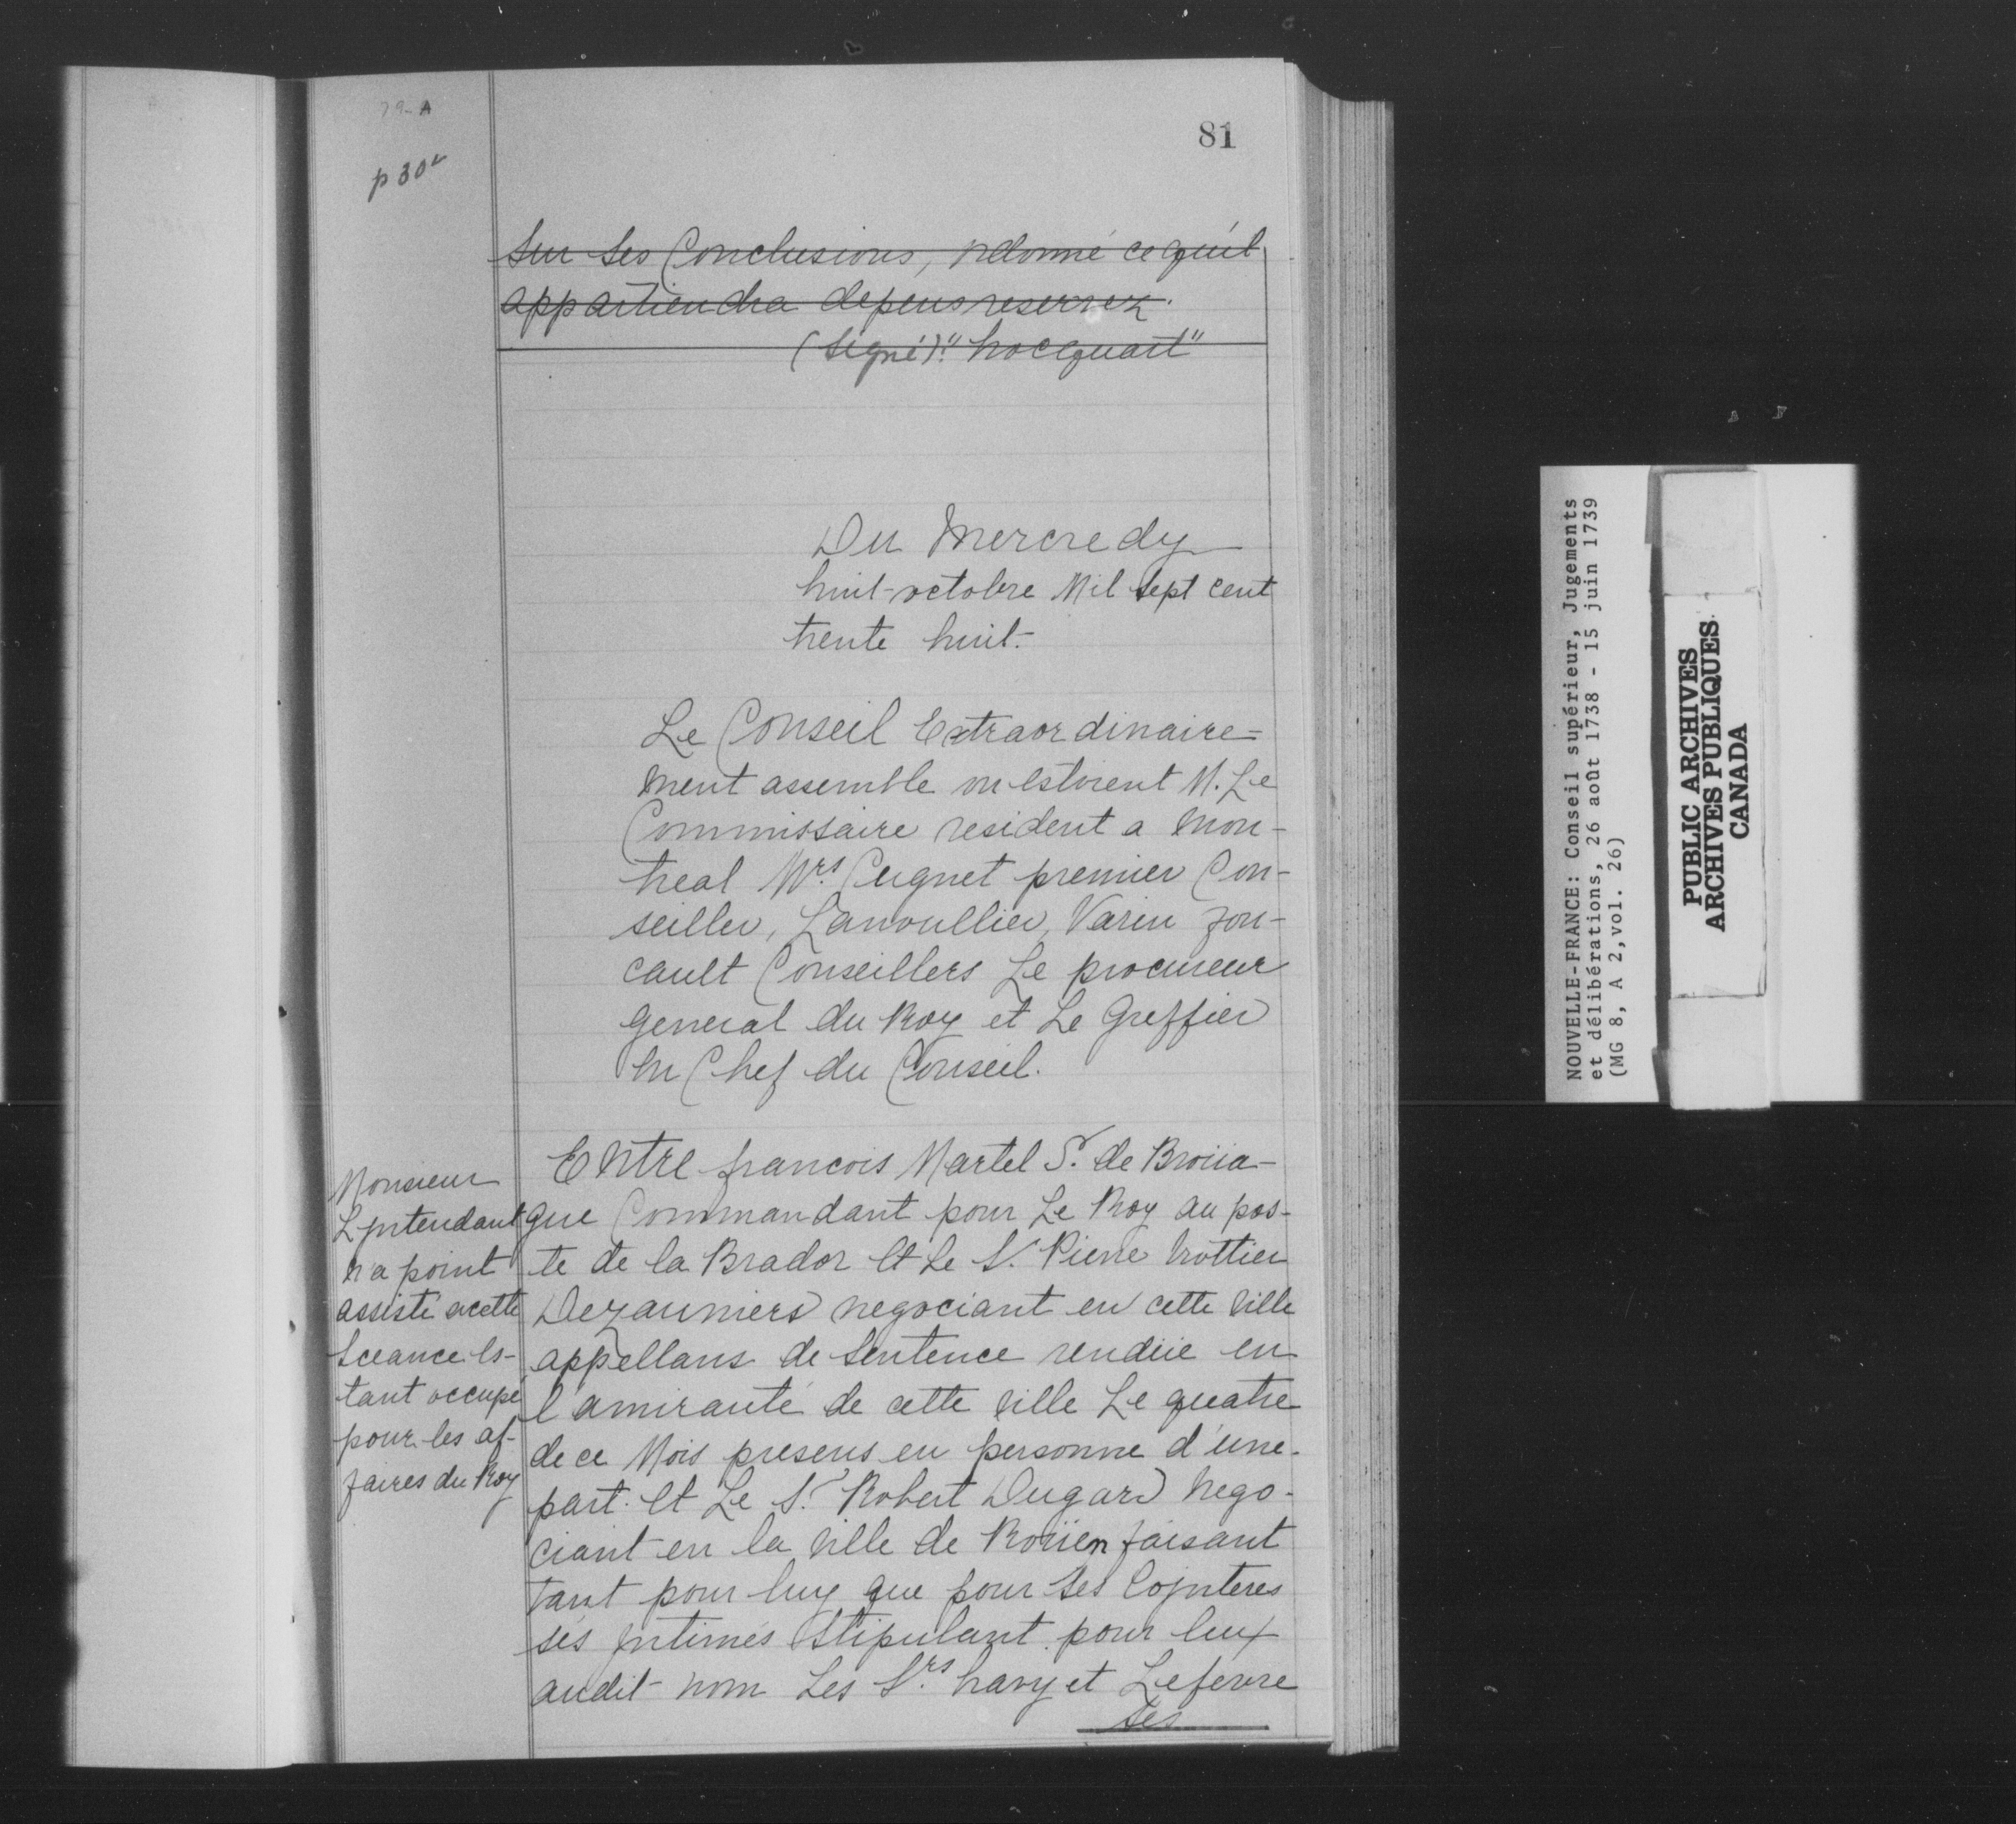 79-A
81
p 30v
sur ses Conclusions, ordonné ce qu'il
appartiendra depens reservez.
(signé) "hocquart"
Du Mercredy
huit octobre Mil sept cent
trente huit.
Le Conseil Extraordinaire=
ment assemble ou estoient M. Le
Commissaire resident a Mon-
treal Mrs. Cugnet premier Con-
seiller, Lanoullier, Varin fou-
cault Conseillers Le procureur
general du Roy et Le Greffier
En Chef du Conseil.
Monsieur
L'jntendant
n'a point
assisté acette
Sceance es-
tant occupé
pour les af-
faires du Roy
Entre francois Martel Sr. de Broüa-
gue Commandant pour Le Roy au pos-
te de la Brador Et Le Sr. Pierre trottier
Dezauniers negociant en cette ville
appellans de Sentence rendüe en
l'amirauté de cette ville Le quatre
de ce Mois presens en personne d'une
part. Et Le Sr. Robert Dugard Nego-
ciant en la ville de Roüen faisant
tant pour luy que pour ses Cojnteres
sés jntimés Stipulant pour Eux
audit nom Les Srs. havy et Lefevre
ses
NOUVELLE-FRANCE: Conseil supérieur, Jugements
et délibérations, 26 août 1738 - 15 juin 1739
(MG 8, A 2,vol. 26)
PUBLIC ARCHIVES
ARCHIVES PUBLIQUES
CANADA